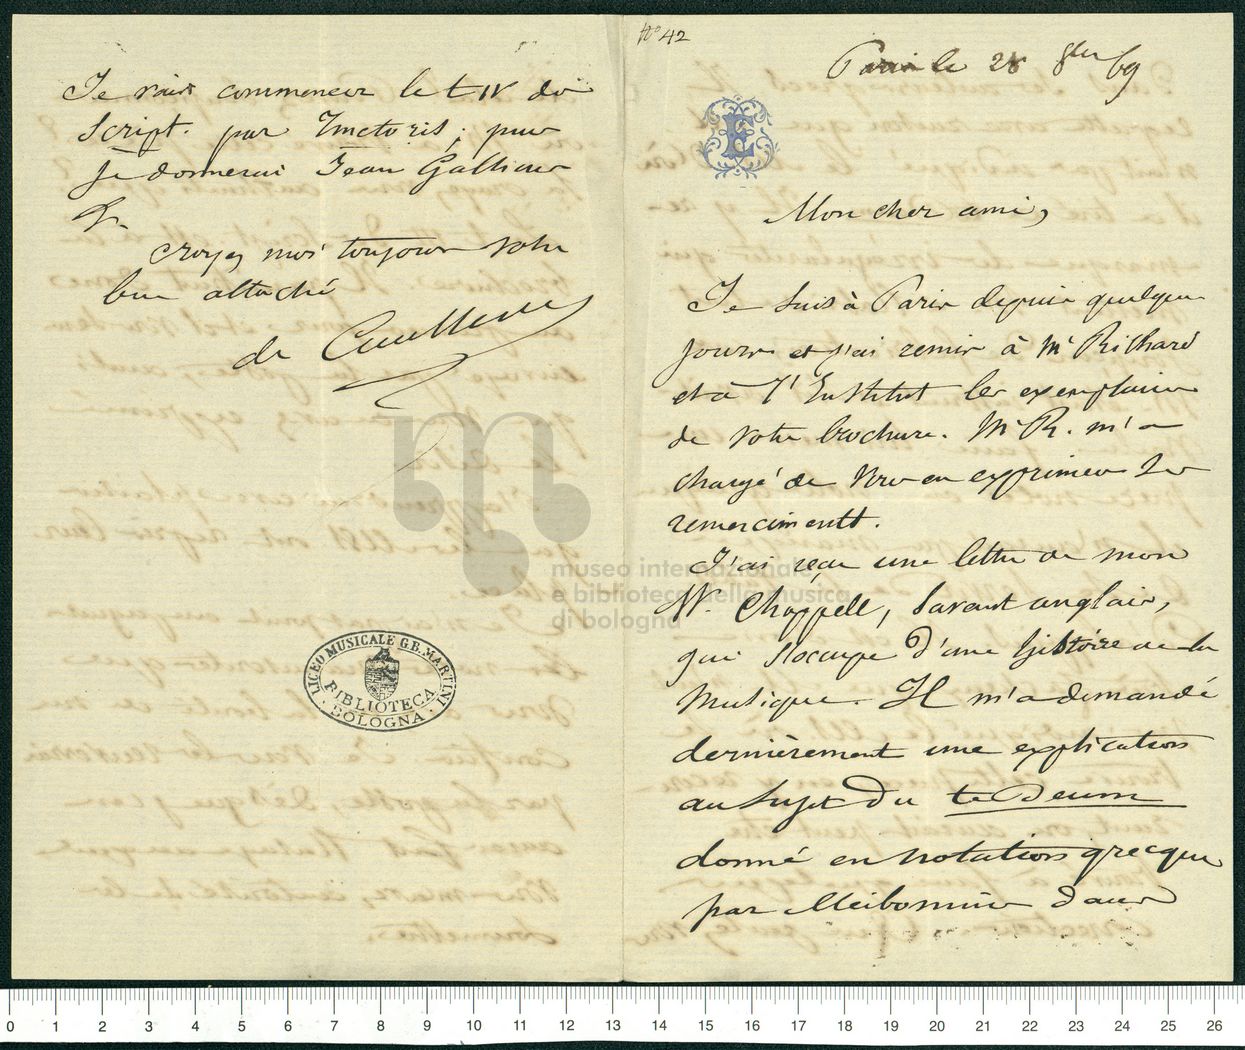 N° 42
Paris le 28 8bre 69
E
Mon cher ami,
Je suis à Paris depuis quelques
jours et j'ai remis à Mr Richard
et à l'Institut les exemplaires
de votre brochure. Mr R. m'a
chargé de vous en exprimer ses
remerciments.
J'ai reçu une lettre de mon
W. Chappell, savant anglais,
qui s'occupe d'une histoire de la
Musique. Il m'a demandé
dernièrement une explication
au sujet du te Deum
donné en notation grecque
par Meibomius dans
Je vais commencer le t IV des
Script. par Tinctoris; puis
je donnerai Jean Gallicus
&.
Croyez moi toujours votre
bien attaché
de Coussemaker
LICEO MUSICALE G.B. MARTINI
BIBLIOTECA
BOLOGNA
museo internazionale
e biblioteca della musica
di bologna
0 1 2 3 4 5 6 7 8 9 10 11 12 13 14 15 16 17 18 19 20 21 22 23 24 25 26